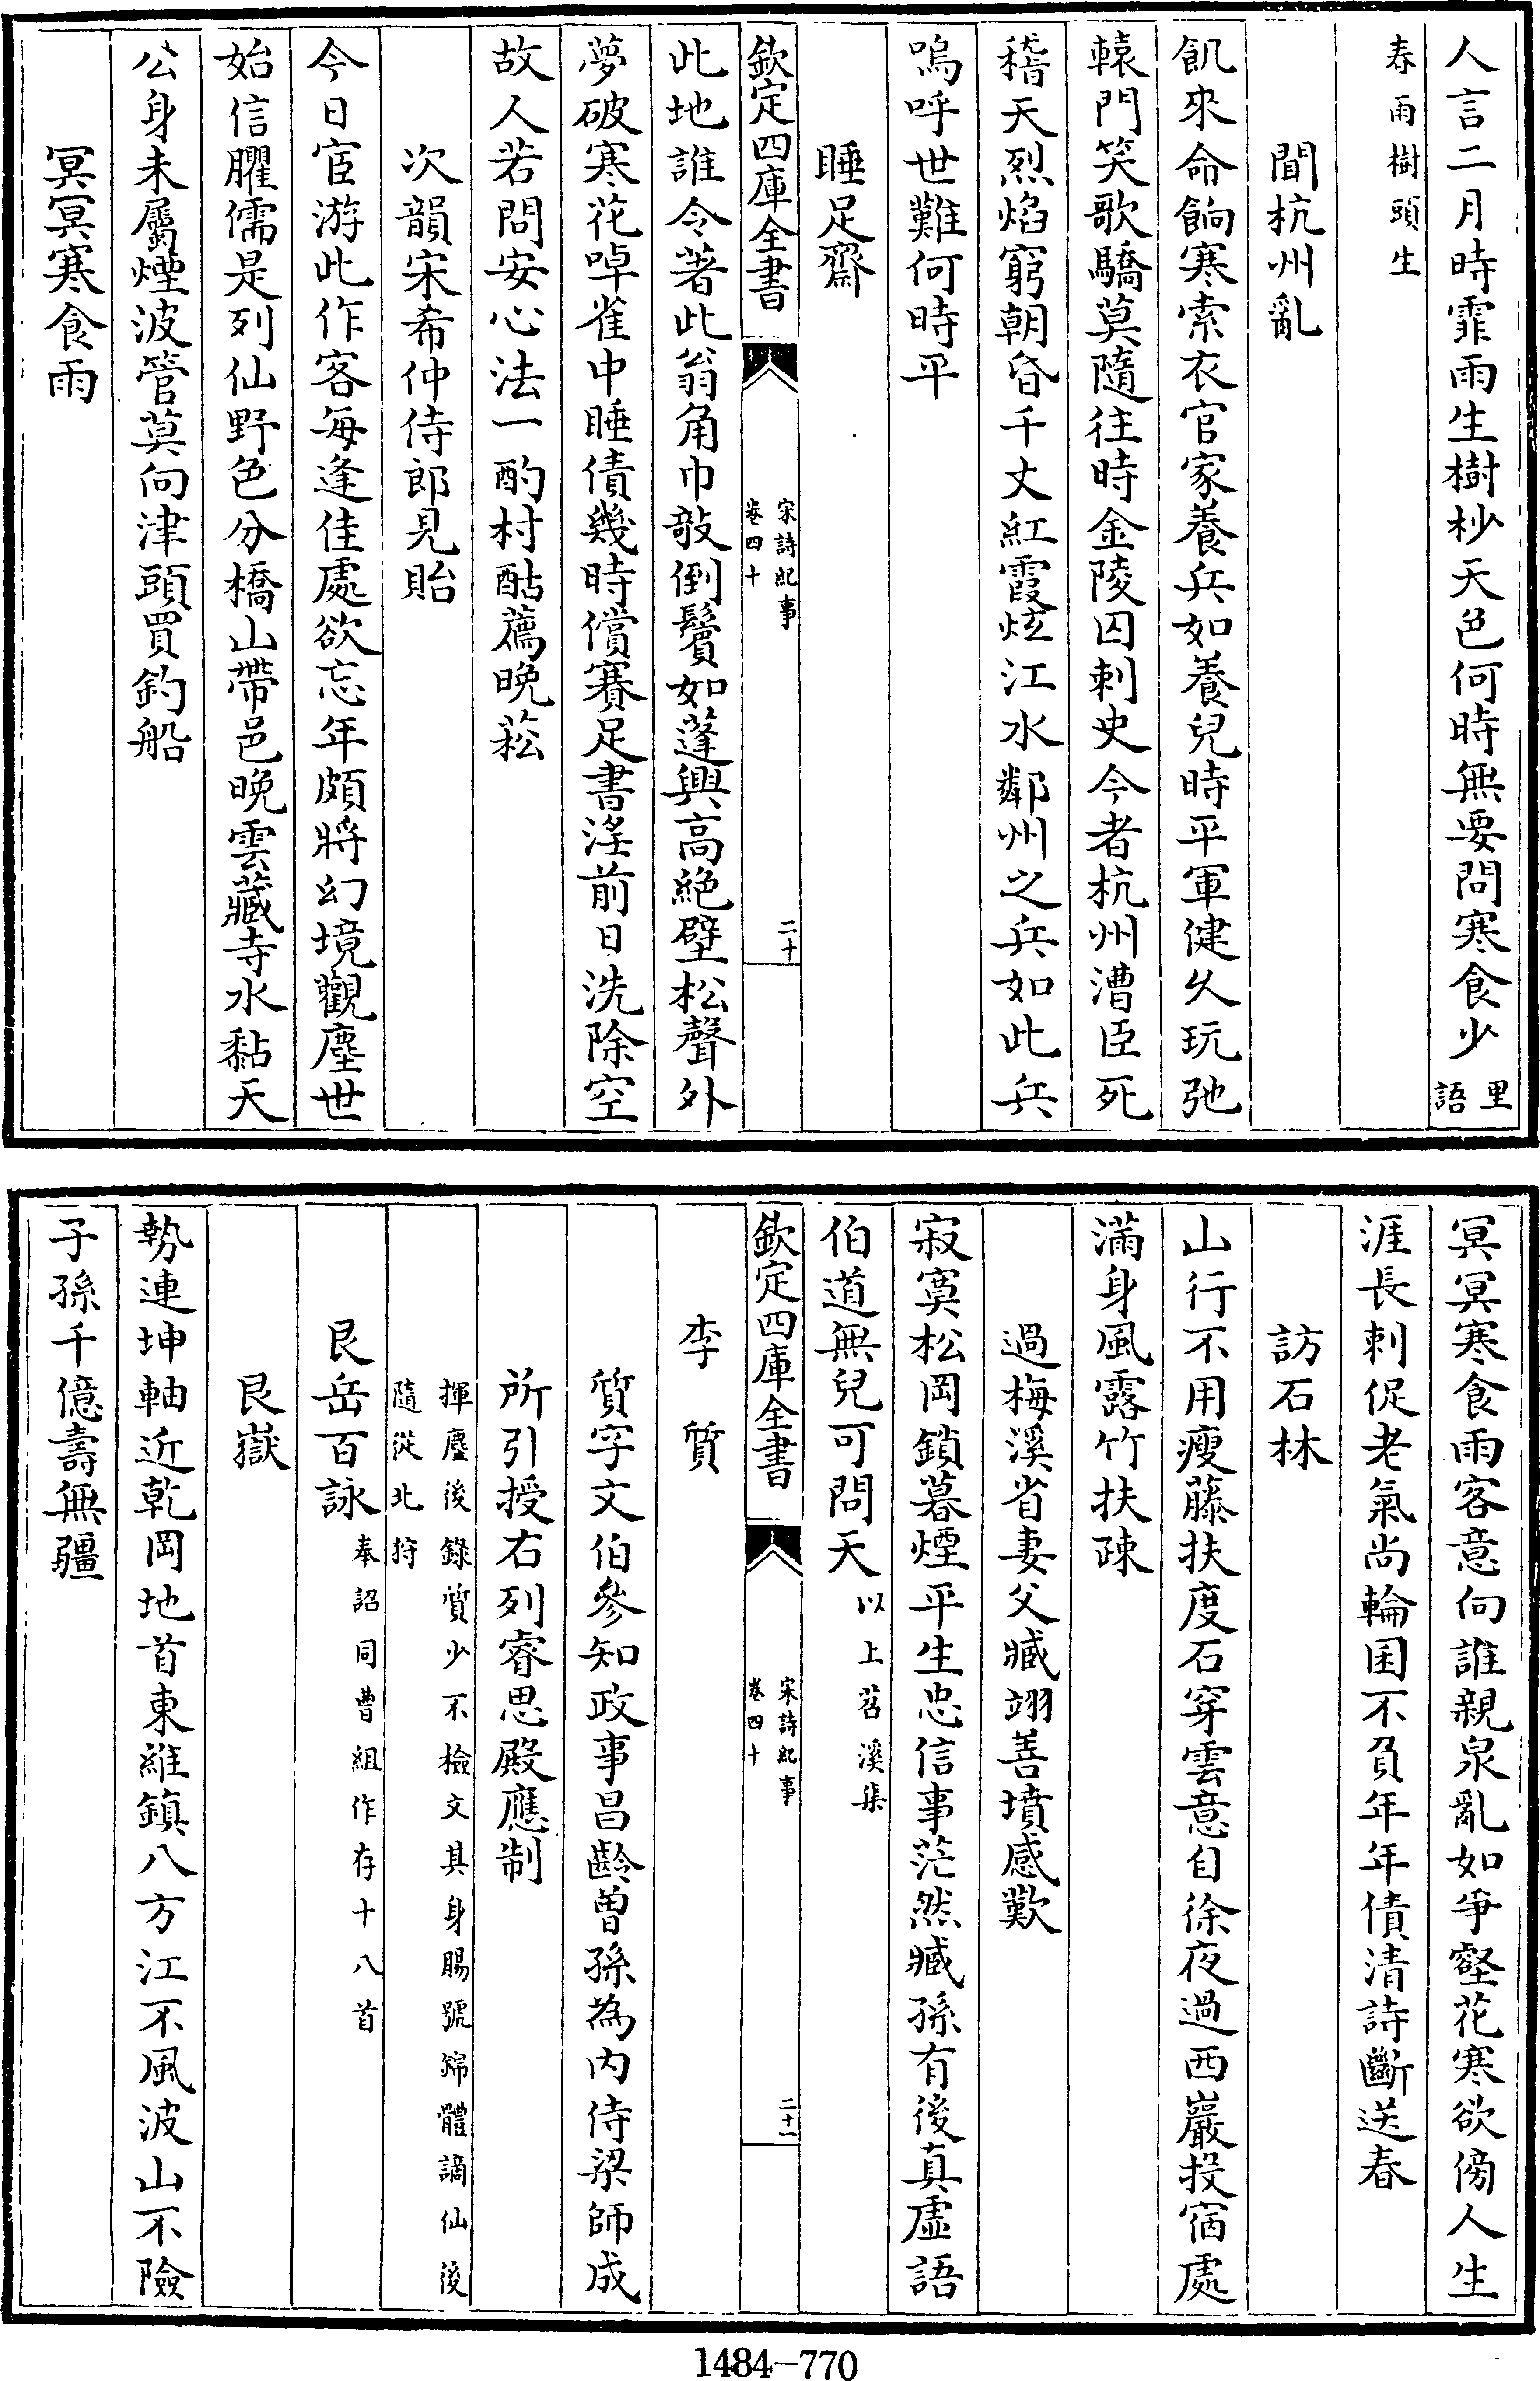 人言二月時霏雨生樹杪天色何時無要問寒食少里語
春雨樹頭生
聞杭州亂
飢來命餉寒索衣官家養兵如養兒時平軍健久玩弛
轅門笑歌驕莫隨往時金陵囚刺史今者杭州漕臣死
稽天烈焰窮朝昏千丈紅霞炫江水鄰州之兵如此兵
嗚呼世難何時平
睡足齋
欽定四庫全書
宋詩紀事
卷四十
二十
此地誰令著此翁角巾敧倒鬢如蓬興高絶壁松聲外
夢破寒花啅雀中睡債幾時償賽足書滛前日洗除空
故人若問安心法一酌村酤薦晚菘
次韻宋希仲侍郎見貽
今日宦游此作客每逢佳處欲忘年頗將幻境觀塵世
始信臞儒是列仙野色分橋山帶邑晚雲藏寺水黏天
公身未屬煙波管莫向津頭買釣船
冥冥寒食雨
冥冥寒食雨客意向誰親泉亂如爭壑花寒欲傍人生
涯長刺促老氣尚輪囷不負年年債清詩斷送春
訪石林
山行不用瘦藤扶度石穿雲意自徐夜過西巖投宿處
滿身風露竹扶疎
過梅溪省妻父臧翊善墳感歎
寂寞松岡鎖暮煙平生忠信事茫然臧孫有後真虛語
伯道無兒可問天以上苕溪集
欽定四庫全書
宋詩紀事
卷四十
二十一
李質
質字文伯參知政事昌齡曾孫為内侍梁師成
所引授右列睿思殿應制
揮麈後錄質少不檢文其身賜號錦體謫仙後
隨從北狩
艮岳百詠奉詔同曹組作存十八首
艮嶽
勢連坤軸近乾岡地首東維鎮八方江不風波山不險
子孫千億壽無疆
1484-770